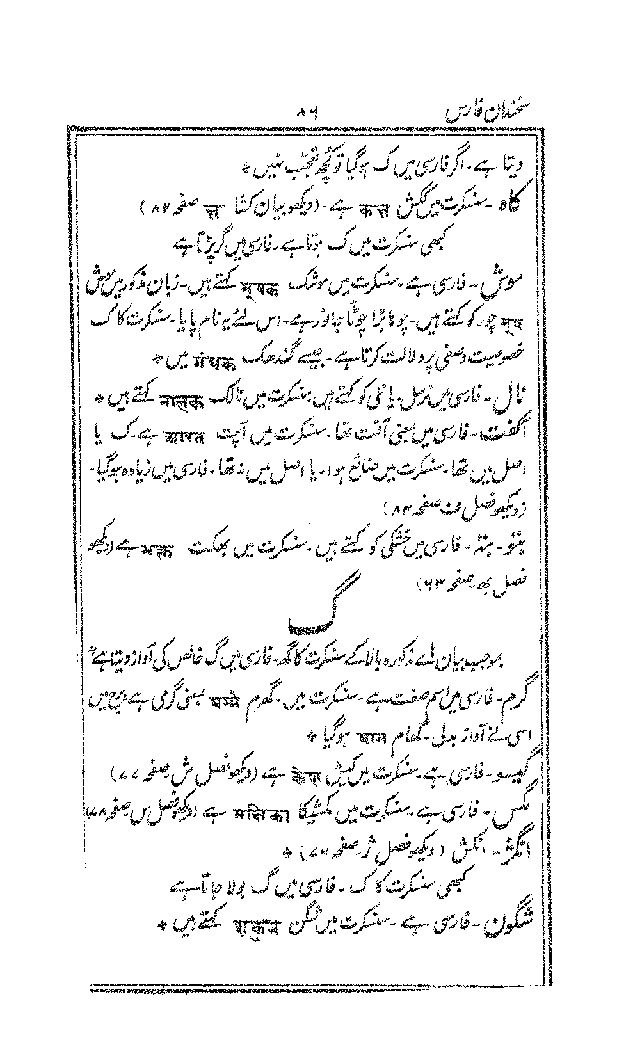 سخندان فارس ۸۶
دیتا ہے۔ اگر فارسی میں ک ہو گیا تو کچھ تعجب نہیں *
کاہ۔ سنسکرت میں ککش कक्ष ہے۔ (دیکھو بیان کشا क्ष صفحہ ۸۷)
کبھی سنسکرت میں ک ہوتا ہے۔ فارسی میں گر پڑتا ہے
موش۔ فارسی ہے۔ سنسکرت میں موشک मूषक کہتے ہیں۔ زبان مذکور میں موش
मूष چور کو کہتے ہیں۔ چوہا بڑا چوٹا جانور ہے۔ اس لئے یہ نام پایا۔ سنسکرت کا ک
خصوصیت وصفی پر دلالت کرتا ہے۔ جیسے گندھک गंधक میں *
نال۔ فارسی میں نرسل۔ یا نلی کو کہتے ہیں۔ سنسکرت میں نالک नालक کہتے ہیں *
آگفت۔ فارسی میں بمعنی آفت تھا۔ سنسکرت میں آپت आपत ہے۔ ک یا
اصل میں تھا۔ سنسکرت میں ضائع ہوا۔ یا اصل میں نہ تھا۔ فارسی میں زیادہ ہو گیا۔
(دیکھو فصل ف صفحہ ۸۴)
فارسی میں خشکے کو کہتے ہیں۔ سنسکرت میں بھکت भक्त ہے (دیکھو
فصل بھ صفحہ ۶۳)
گ
بموجب بیان مذکورہ بالا کے سنسکرت کا گھ۔ فارسی میں گ خالص کی آواز دیتا ہے
گرم۔ فارسی میں اسم صفت ہے۔ سنسکرت میں۔ گھرم घर्म بمعنی گرمی ہے برج میں
اسی نے آواز بدلی۔ گھام घाम ہو گیا *
گیسو۔ فارسی ہے۔ سنسکرت میں کیش केश ہے (دیکھو فصل ش صفحہ ۷۷)
مگس۔ فارسی ہے۔ سنسکرت میں مکشکا मक्षिका ہے (دیکھو فصل س صفحہ ۷۸)
انگژ۔ انکش (دیکھو فصل ژ صفحہ ۷۶) *
کبھی سنسکرت کا ک۔ فارسی میں گ بولا جاتا ہے
شگون۔ فارسی ہے۔ سنسکرت میں شکن शकुन کہتے ہیں *